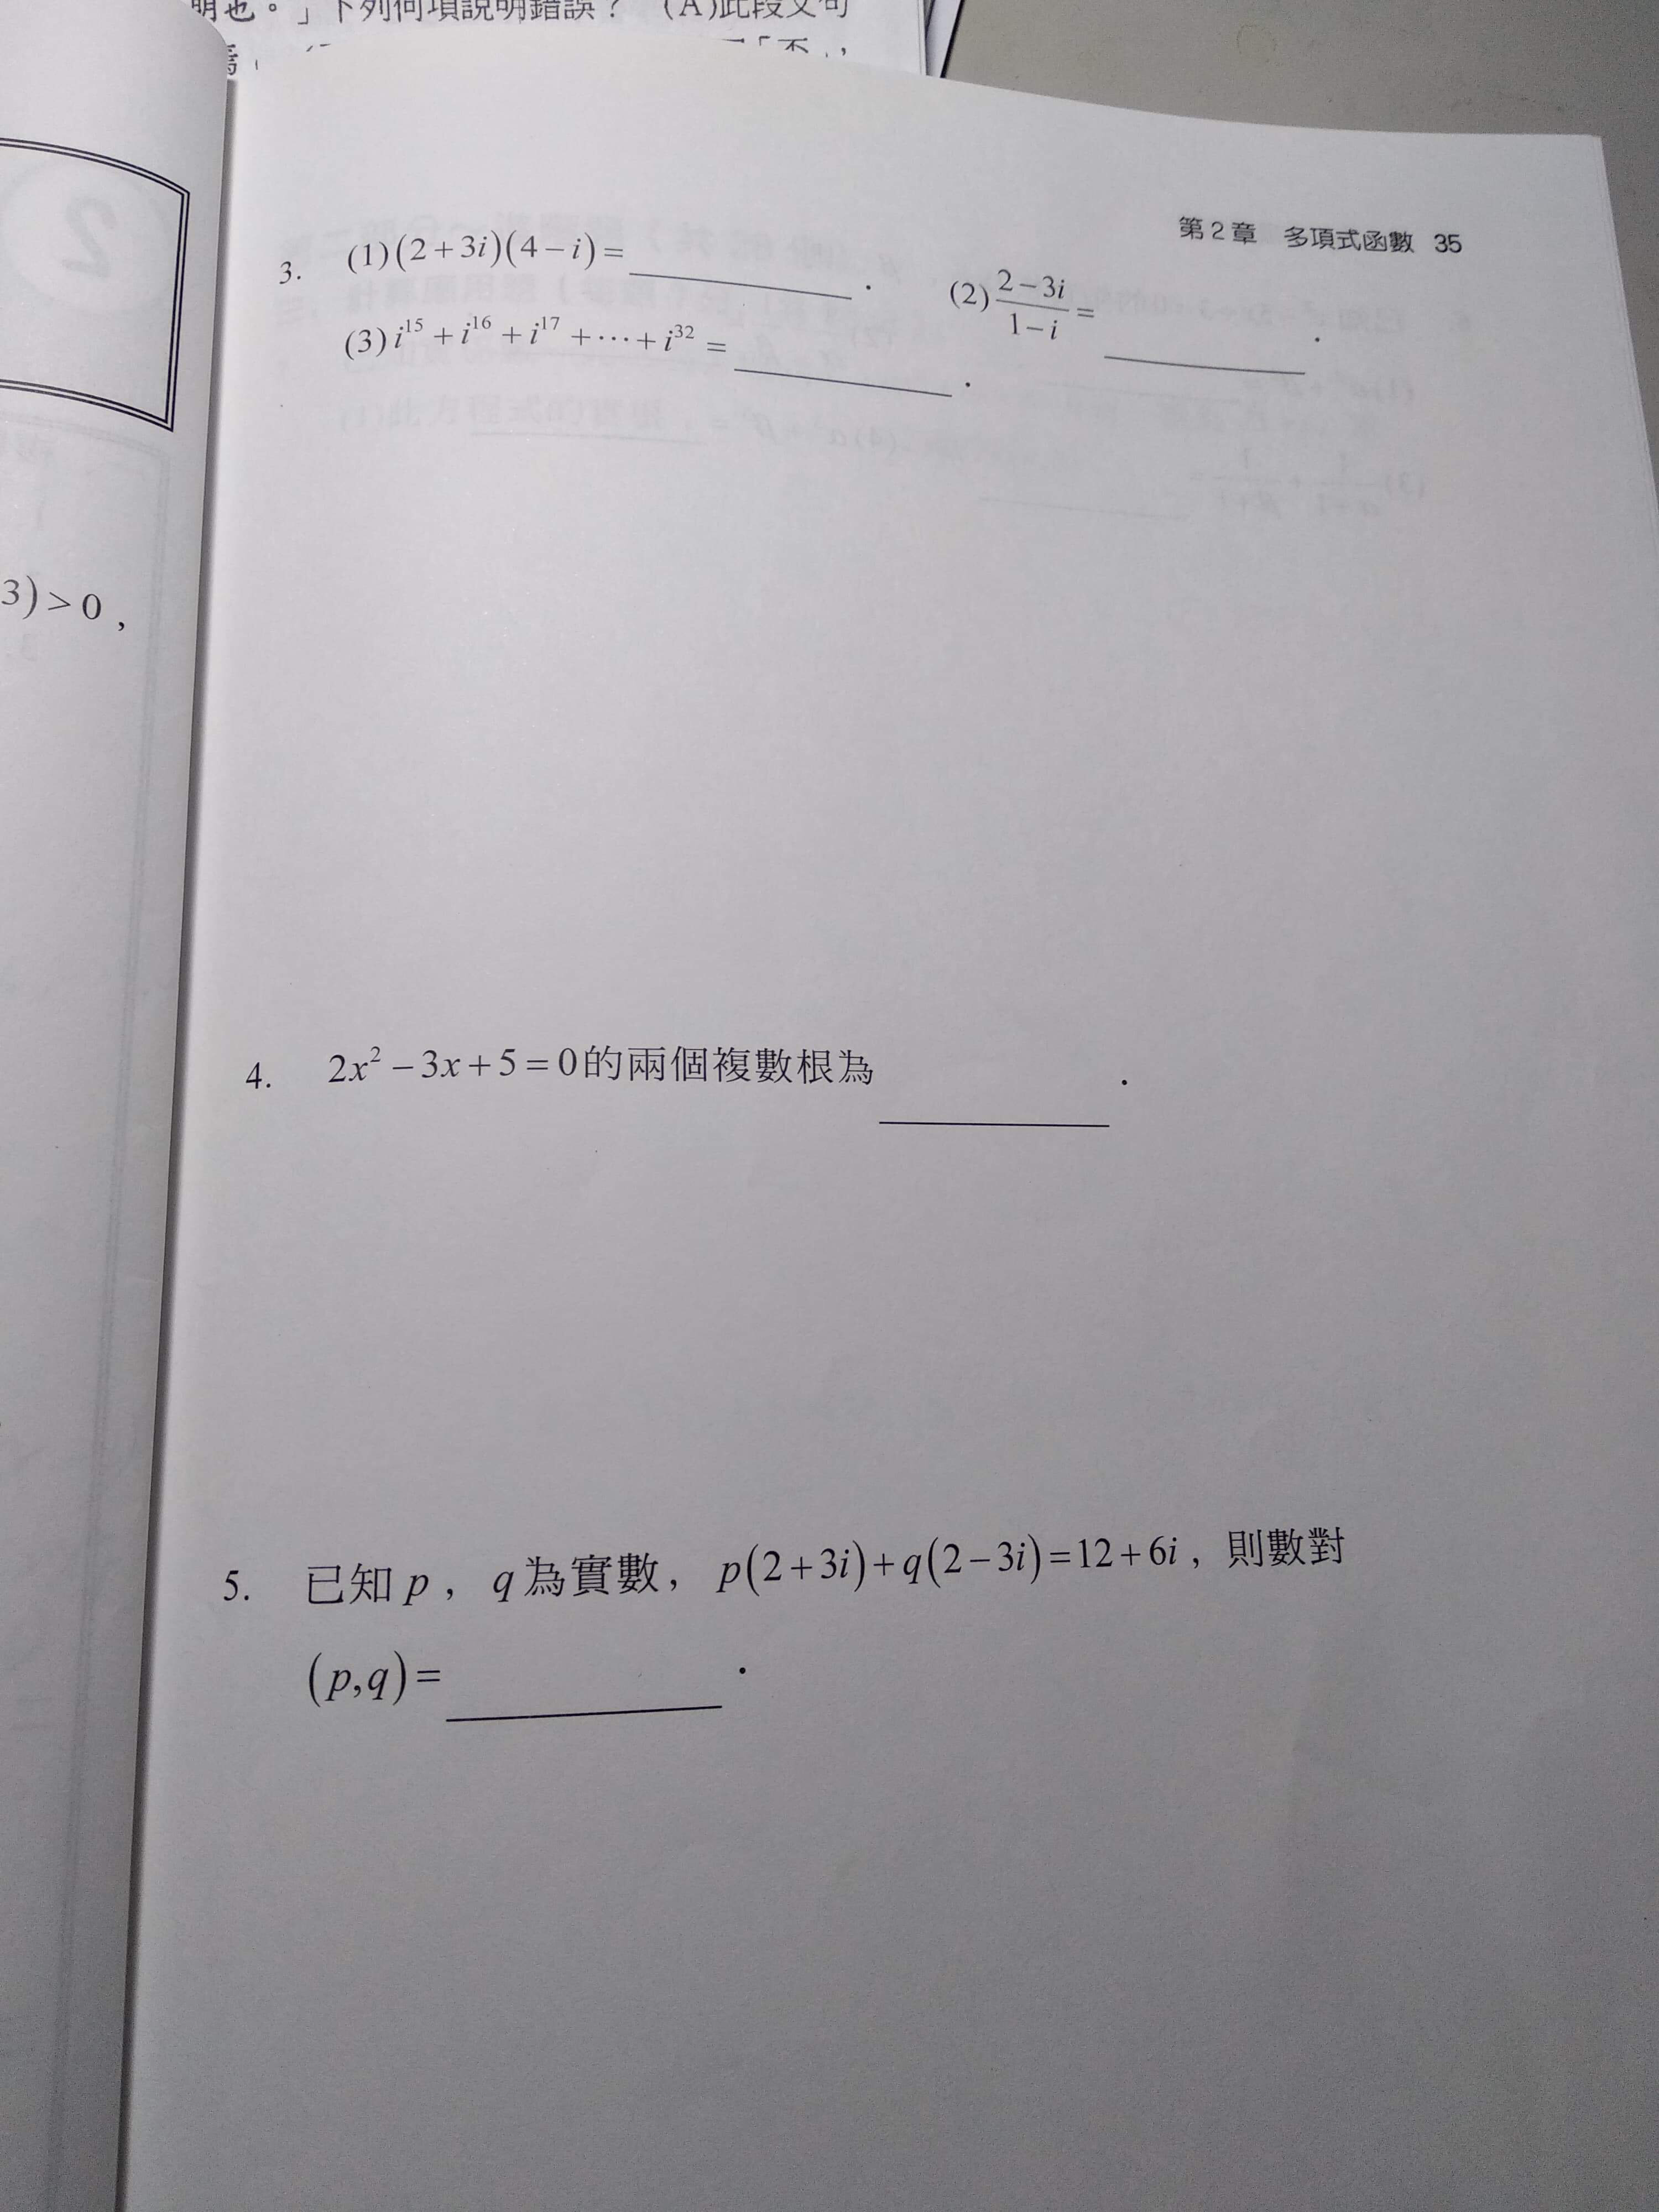 明也。」下列何項說明錯誤？ (A)此段文句
「不」,
第2章 多項式函數 35
3. (1)(2+3i)(4−i)=________. (2)\frac{2−3i}{1−i}=________.
(3)i^{15}+i^{16}+i^{17}+⋯+i^{32}=________.
3)>0,
4. 2x²−3x+5=0的兩個複數根為________.
5. 已知p, q為實數, p(2+3i)+q(2−3i)=12+6i, 則數對
(p,q)=________.